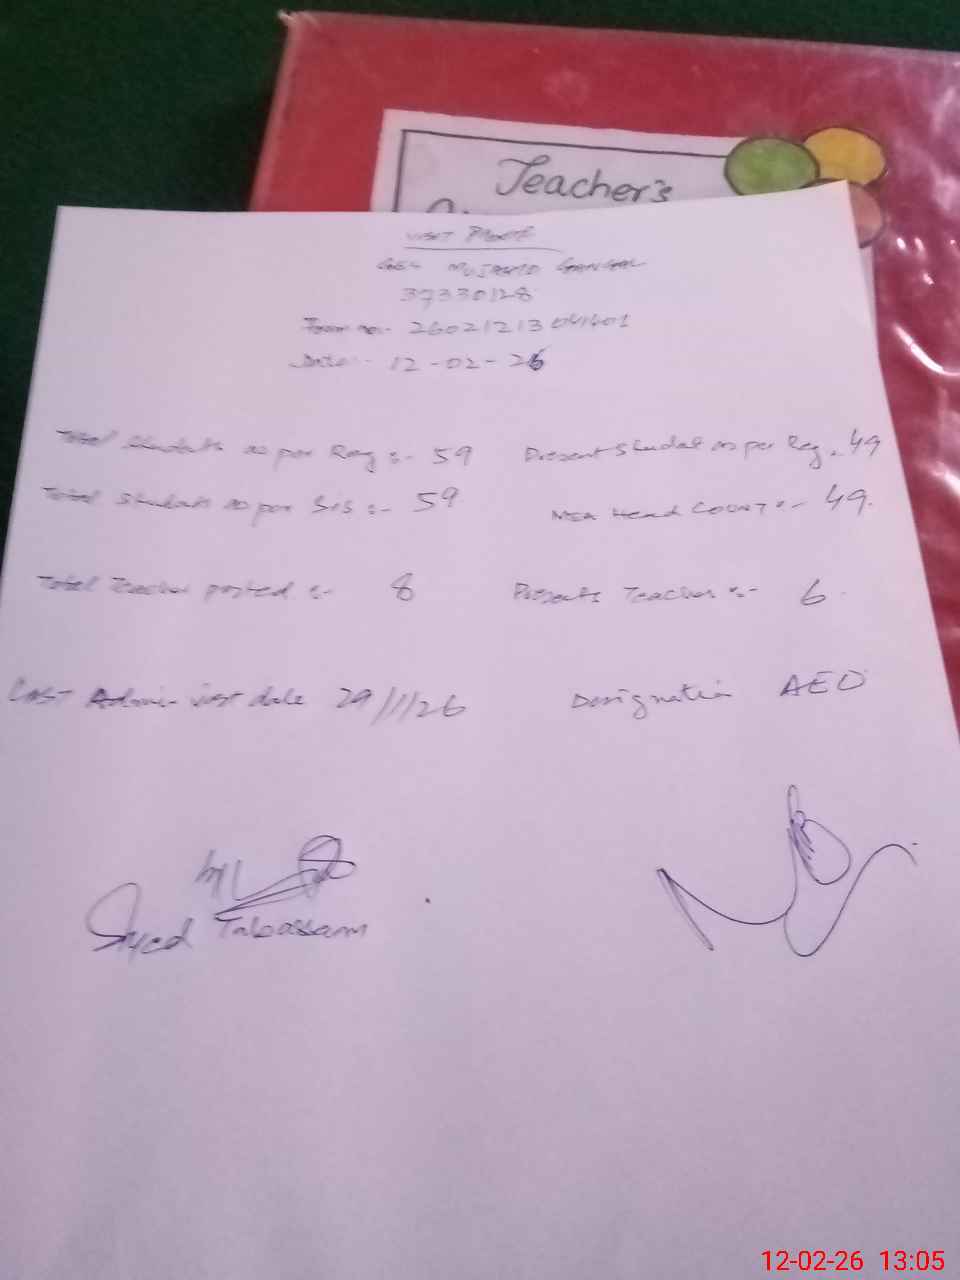 Teacher's
VISIT PROOF
GES MUJAHID
37330128
Form no:- 26021213041401
Date:- 12-02-26
Total Students as per Reg:- 59 Present Student as per Reg. 49
Total Students as per SIS:- 59 MEA Head COUNT:- 49.
Total Teacher posted:- 8 Presents Teacher:- 6
LAST Admin- visit date 29/1/26 Designation AEO
Syed Tabassam
12-02-26 13:05